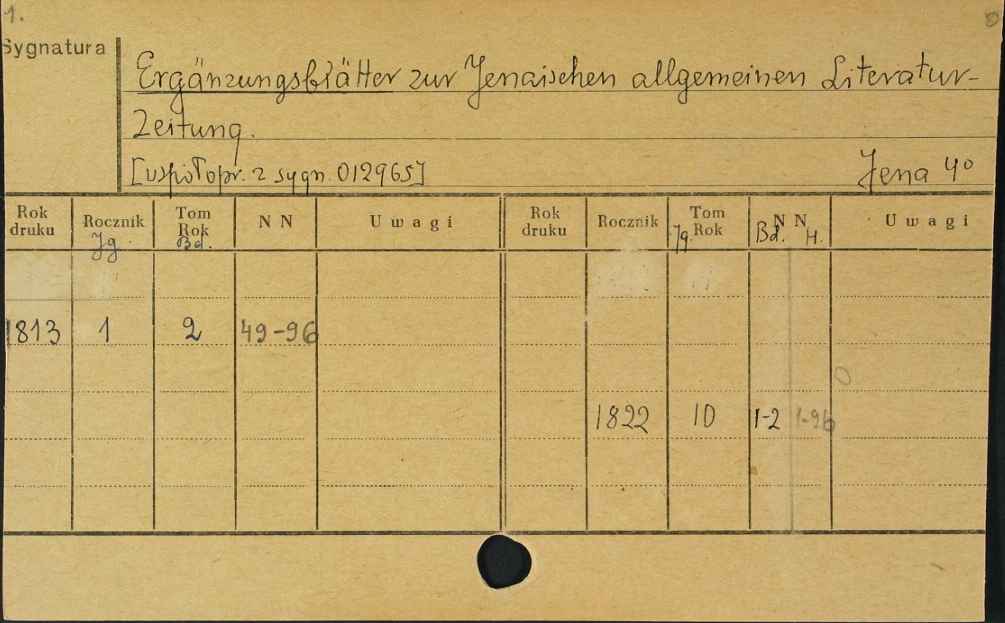 1.
Sygnatura
Ergänzungsblätter zur Jenaischen allgemeinen Literatur-
Zeitung.
[współopr. z sygn. 012965] Jena 4º
Rok druku Rocznik Tom Rok N N Uwagi Rok druku Rocznik Tom Rok N N Uwagi
Jg. Bd. Jg. Bd. H.
1813 1 2 49-96
1822 10 1-2 1-96